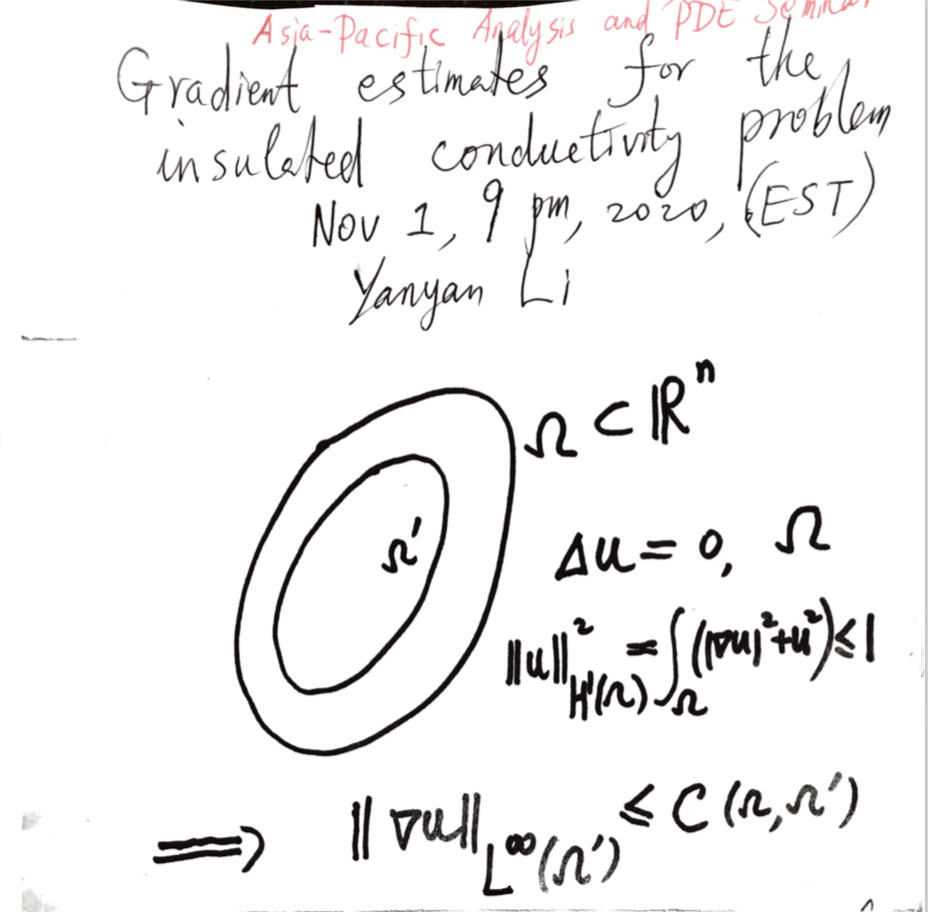 Asia-Pacific Analysis and PDE Seminar
Gradient estimates for the
insulated conductivity problem
Nov 1, 9 pm, 2020, (EST)
Yanyan Li
Ω ⊂ ℝⁿ
Ω'
Δu = 0, Ω
||u||²_{H¹(Ω)} = ∫_Ω (|∇u|²+u²) ≤ 1
⟹ ||∇u||_{L^∞(Ω')} ≤ C(Ω,Ω')